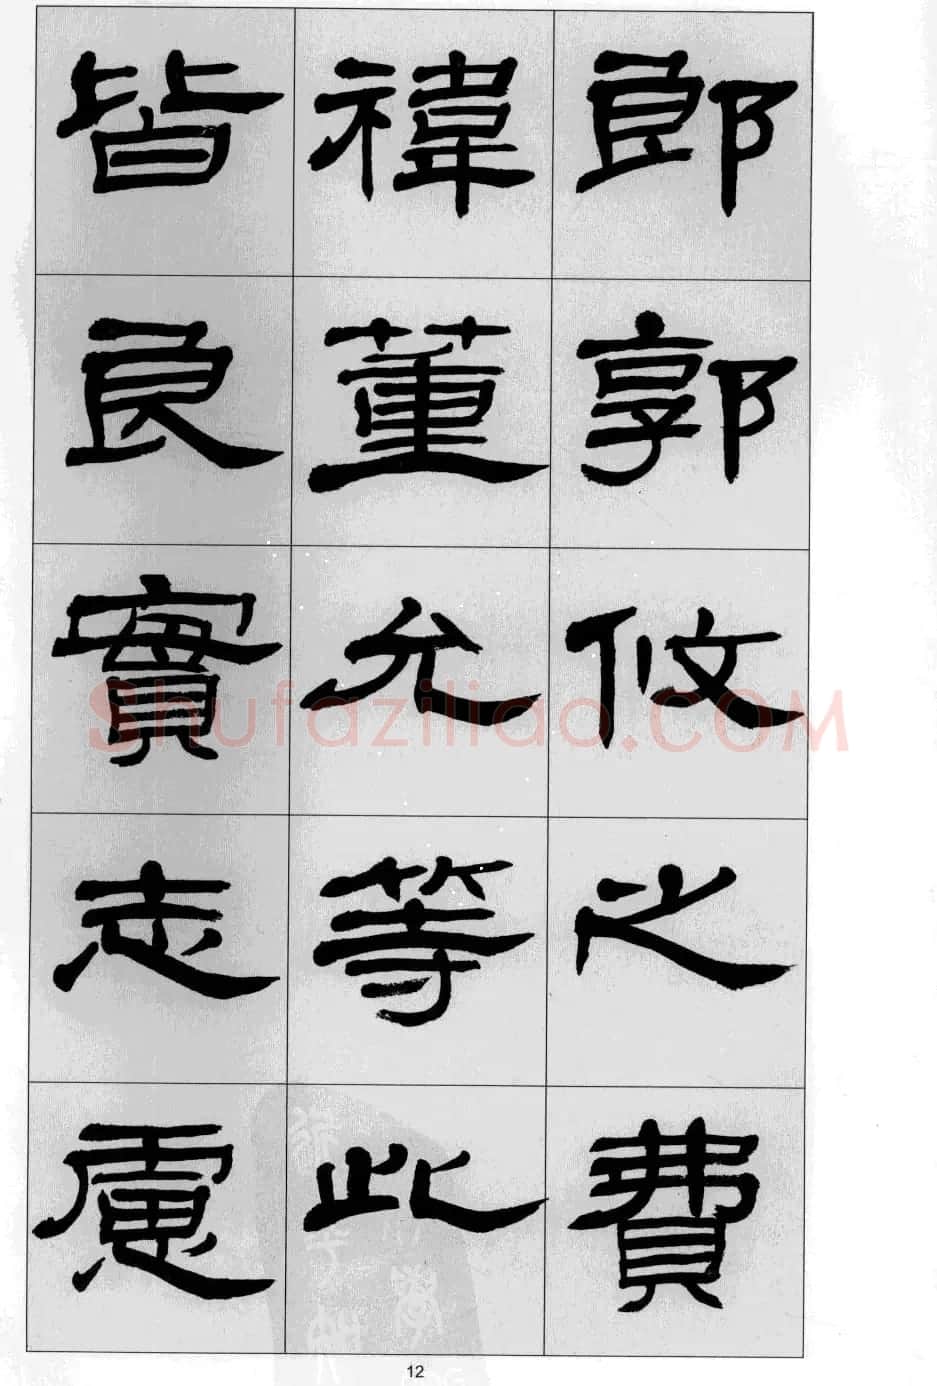 郎郭攸之費
禕董允等此
皆良實志慮
Shufaziliao.COM
12